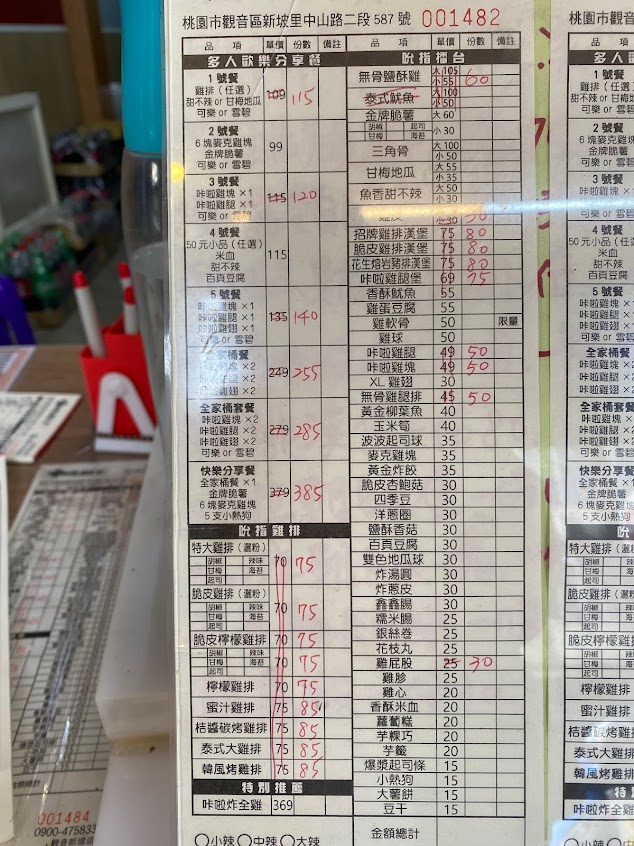 桃園市觀音區新坡里中山路二段 587 號 001482
品 項 單價 份數 備註
多人歡樂分享餐
1 號餐
雞排(任選)
甜不辣 or 甘梅地瓜
可樂 or 雪碧
109 115
2 號餐
6 塊麥克雞塊
金牌脆薯
可樂 or 雪碧
99
3 號餐
咔啦雞塊 ×1
咔啦雞腿 ×1
可樂 or 雪碧
115 120
4 號餐
50 元小品(任選)
米血
甜不辣
百頁豆腐
115
5 號餐
咔啦雞塊 ×1
咔啦雞腿 ×1
咔啦雞翅 ×1
可樂 or 雪碧
135 140
家桶餐
啦雞塊 ×2
啦雞腿 ×2
啦雞翅 ×2
249 255
全家桶套餐
咔啦雞塊 ×2
咔啦雞腿 ×2
咔啦雞翅 ×2
可樂 or 雪碧
279 285
快樂分享餐
全家桶餐 ×1
金牌脆薯
6 塊麥克雞塊
5 支小熱狗
379 385
吮指雞排
特大雞排(選粉) 70 75
胡椒 辣味
甘梅 海苔
起司
脆皮雞排(選粉) 70 75
胡椒 辣味
甘梅 海苔
起司
脆皮檸檬雞排 70 75
胡椒 辣味
甘梅 海苔
起司
70 75
檸檬雞排 70 75
蜜汁雞排 75 85
桔醬碳烤雞排 75 85
泰式大雞排 75 85
韓風烤雞排 75 85
特別推薦
咔啦炸全雞 369
○小辣 ○中辣 ○大辣
品 項 單價 份數 備註
吮指擂台
無骨鹽酥雞 大 105 小 55 60
泰式魷魚 大 100 小 50
金牌脆薯 大 60
胡椒 起司
甘梅 海苔
小 30
三角骨 大 100 小 50
甘梅地瓜 大 55 小 35
魚香甜不辣 大 50 小 30
雞皮 小 30
招牌雞排漢堡 75 80
脆皮雞排漢堡 75 80
花生熔岩豬排漢堡 75 80
咔啦雞腿堡 69 75
香酥魷魚 55
雞蛋豆腐 55
雞軟骨 50 限量
雞球 50
咔啦雞腿 49 50
咔啦雞塊 49 50
XL 雞翅 30
無骨雞腿排 45 50
黃金柳葉魚 40
玉米筍 40
波波起司球 35
麥克雞塊 35
黃金炸餃 35
脆皮杏鮑菇 30
四季豆 30
洋蔥圈 30
鹽酥香菇 30
百頁豆腐 30
雙色地瓜球 30
炸湯圓 30
炸蔥皮 30
鑫鑫腸 30
糯米腸 25
銀絲卷 25
花枝丸 25
雞屁股 25 30
雞胗 25
雞心 20
香酥米血 20
蘿蔔糕 20
芋粿巧 20
芋籤 20
爆漿起司條 15
小熱狗 15
大薯餅 15
豆干 15
金額總計
001484
0900-475833
觀音新坡店
桃園市觀音區新
品 項
多人
1 號餐
雞排(任選)
甜不辣 or 甘梅
可樂 or 雪碧
2 號餐
6 塊麥克雞
金牌脆薯
可樂 or 雪碧
3 號餐
咔啦雞塊 ×
咔啦雞腿 ×
可樂 or 雪碧
4 號餐
50 元小品(任
米血
甜不辣
百頁豆腐
5 號餐
咔啦雞塊 ×
咔啦雞腿 ×
咔啦雞翅 ×
可樂 or 雪碧
全家桶餐
咔啦雞塊 ×2
咔啦雞腿 ×2
咔啦雞翅 ×2
全家桶套餐
咔啦雞塊 ×2
咔啦雞腿 ×2
咔啦雞翅 ×2
可樂 or 雪碧
快樂分享餐
全家桶餐 ×
金牌脆薯
6 塊麥克雞塊
5 支小熱狗
特大雞排(選
脆皮雞排(選
脆皮檸檬雞
檸檬雞排
蜜汁雞排
桔醬碳烤雞
泰式大雞排
韓風烤雞排
特
咔啦炸全雞
○小辣